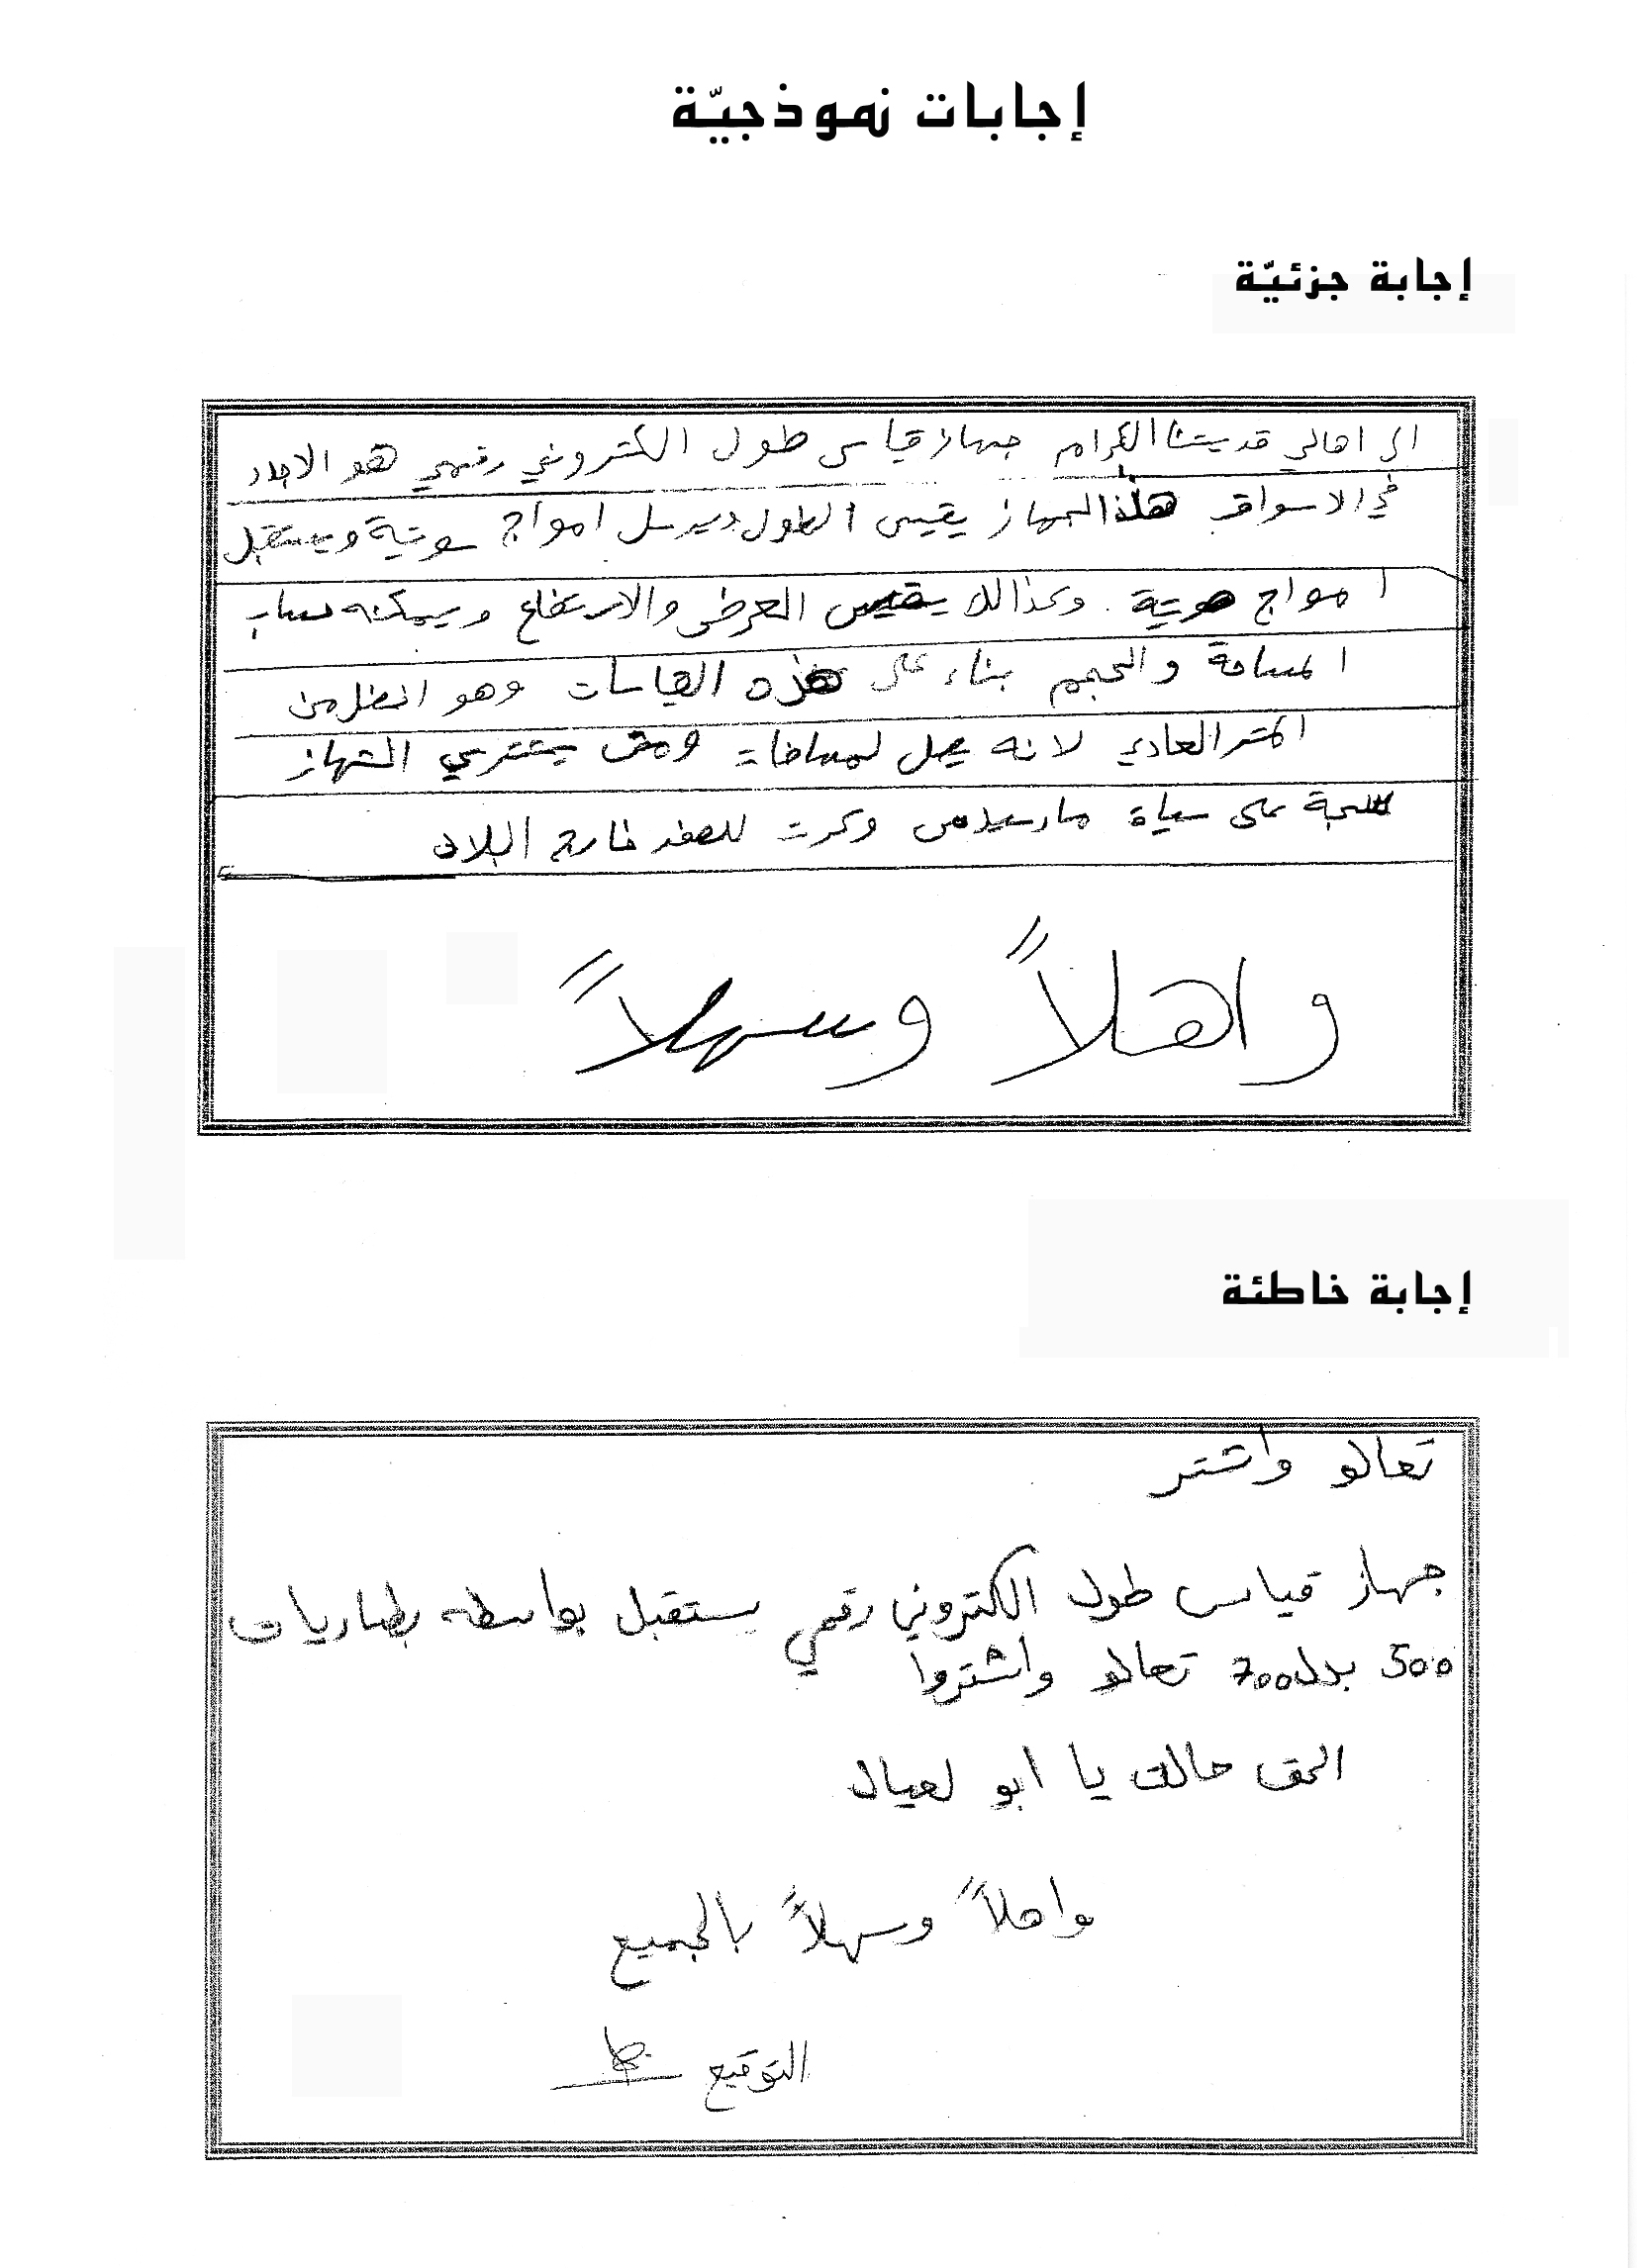 إجابات نموذجيّة
إجابة جزئيّة
الى اهالي قديتنا الكرام جهاز قياس طول الكتروني رقمي هو الاجدد
في الاسواق هذا الجهاز يقيس الطول ويرسل امواج سوتية ويستقبل
امواج صوتية. وكذالك يقيس العرض والارتفاع ويمكنه حساب
المساحة والحجم بناء على هذه القياسات وهو افظل من
المتر العادي لانه يصل لمسافات ومن يشتري الشهاز
سحبة على سياة مارسيدس وكرت للصفر خارج البلاد
واهلاً وسهلاً
إجابة خاطئة
تعالو واشتر
جهاز قياس طول الكتروني رقمي يستقبل بواسطه بطاريات
500 بدل 700 تعالو واشتروا
الحق حالك يا ابو لعيال
واهلاً وسهلاً بالجميع
التوقيع